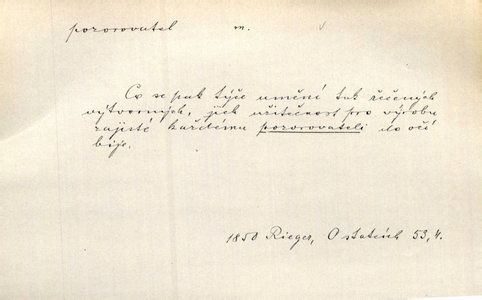 pozorovatel m.
Co se pak týče umění tak řečených
výtvorných, jich užitečnost pro výrobu
zajisté každému pozorovateli do očí
bije.
1850 Rieger, O statcích 53,4.